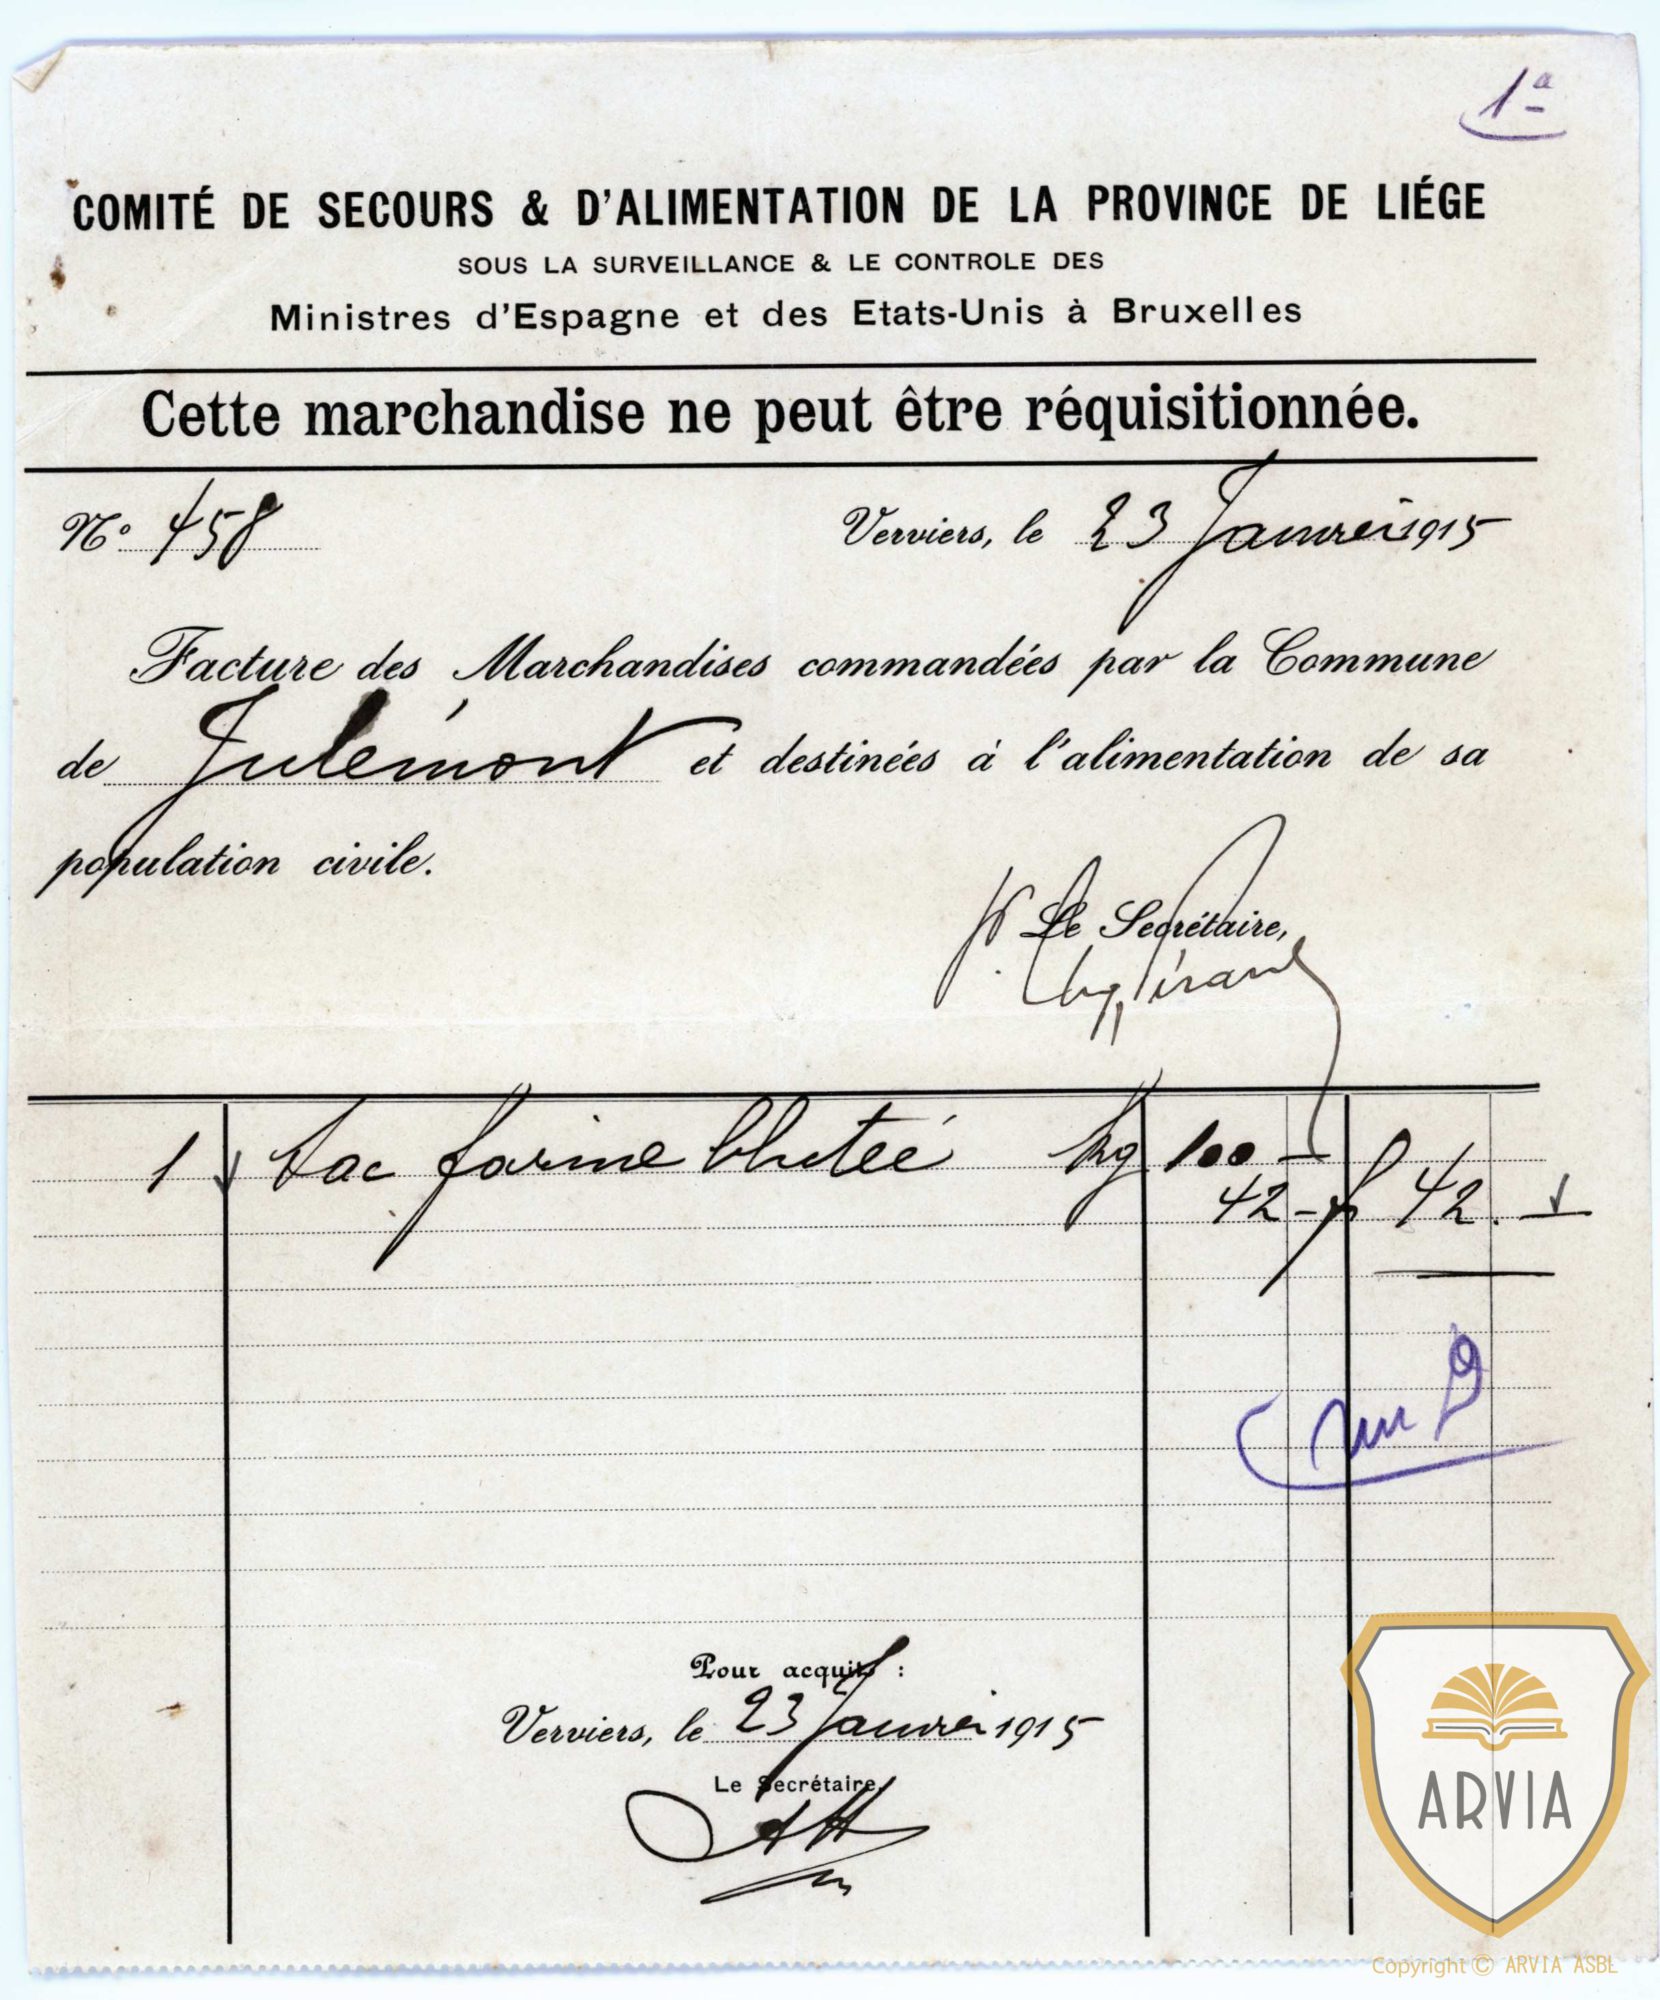 1a
COMITÉ DE SECOURS & D'ALIMENTATION DE LA PROVINCE DE LIÉGE
SOUS LA SURVEILLANCE & LE CONTROLE DES
Ministres d'Espagne et des Etats-Unis à Bruxelles
Cette marchandise ne peut être réquisitionnée.
No 458 Verviers, le 23 Janvier 1915
Facture des Marchandises commandées par la Commune
de Julémont et destinées à l'alimentation de sa
population civile.
Le Secrétaire,
1 sac farine blutée kg 100 -
42 - f 42. -
Pour acquit :
Verviers, le 23 Janvier 1915
Le Secrétaire,
ARVIA
Copyright © ARVIA ASBL